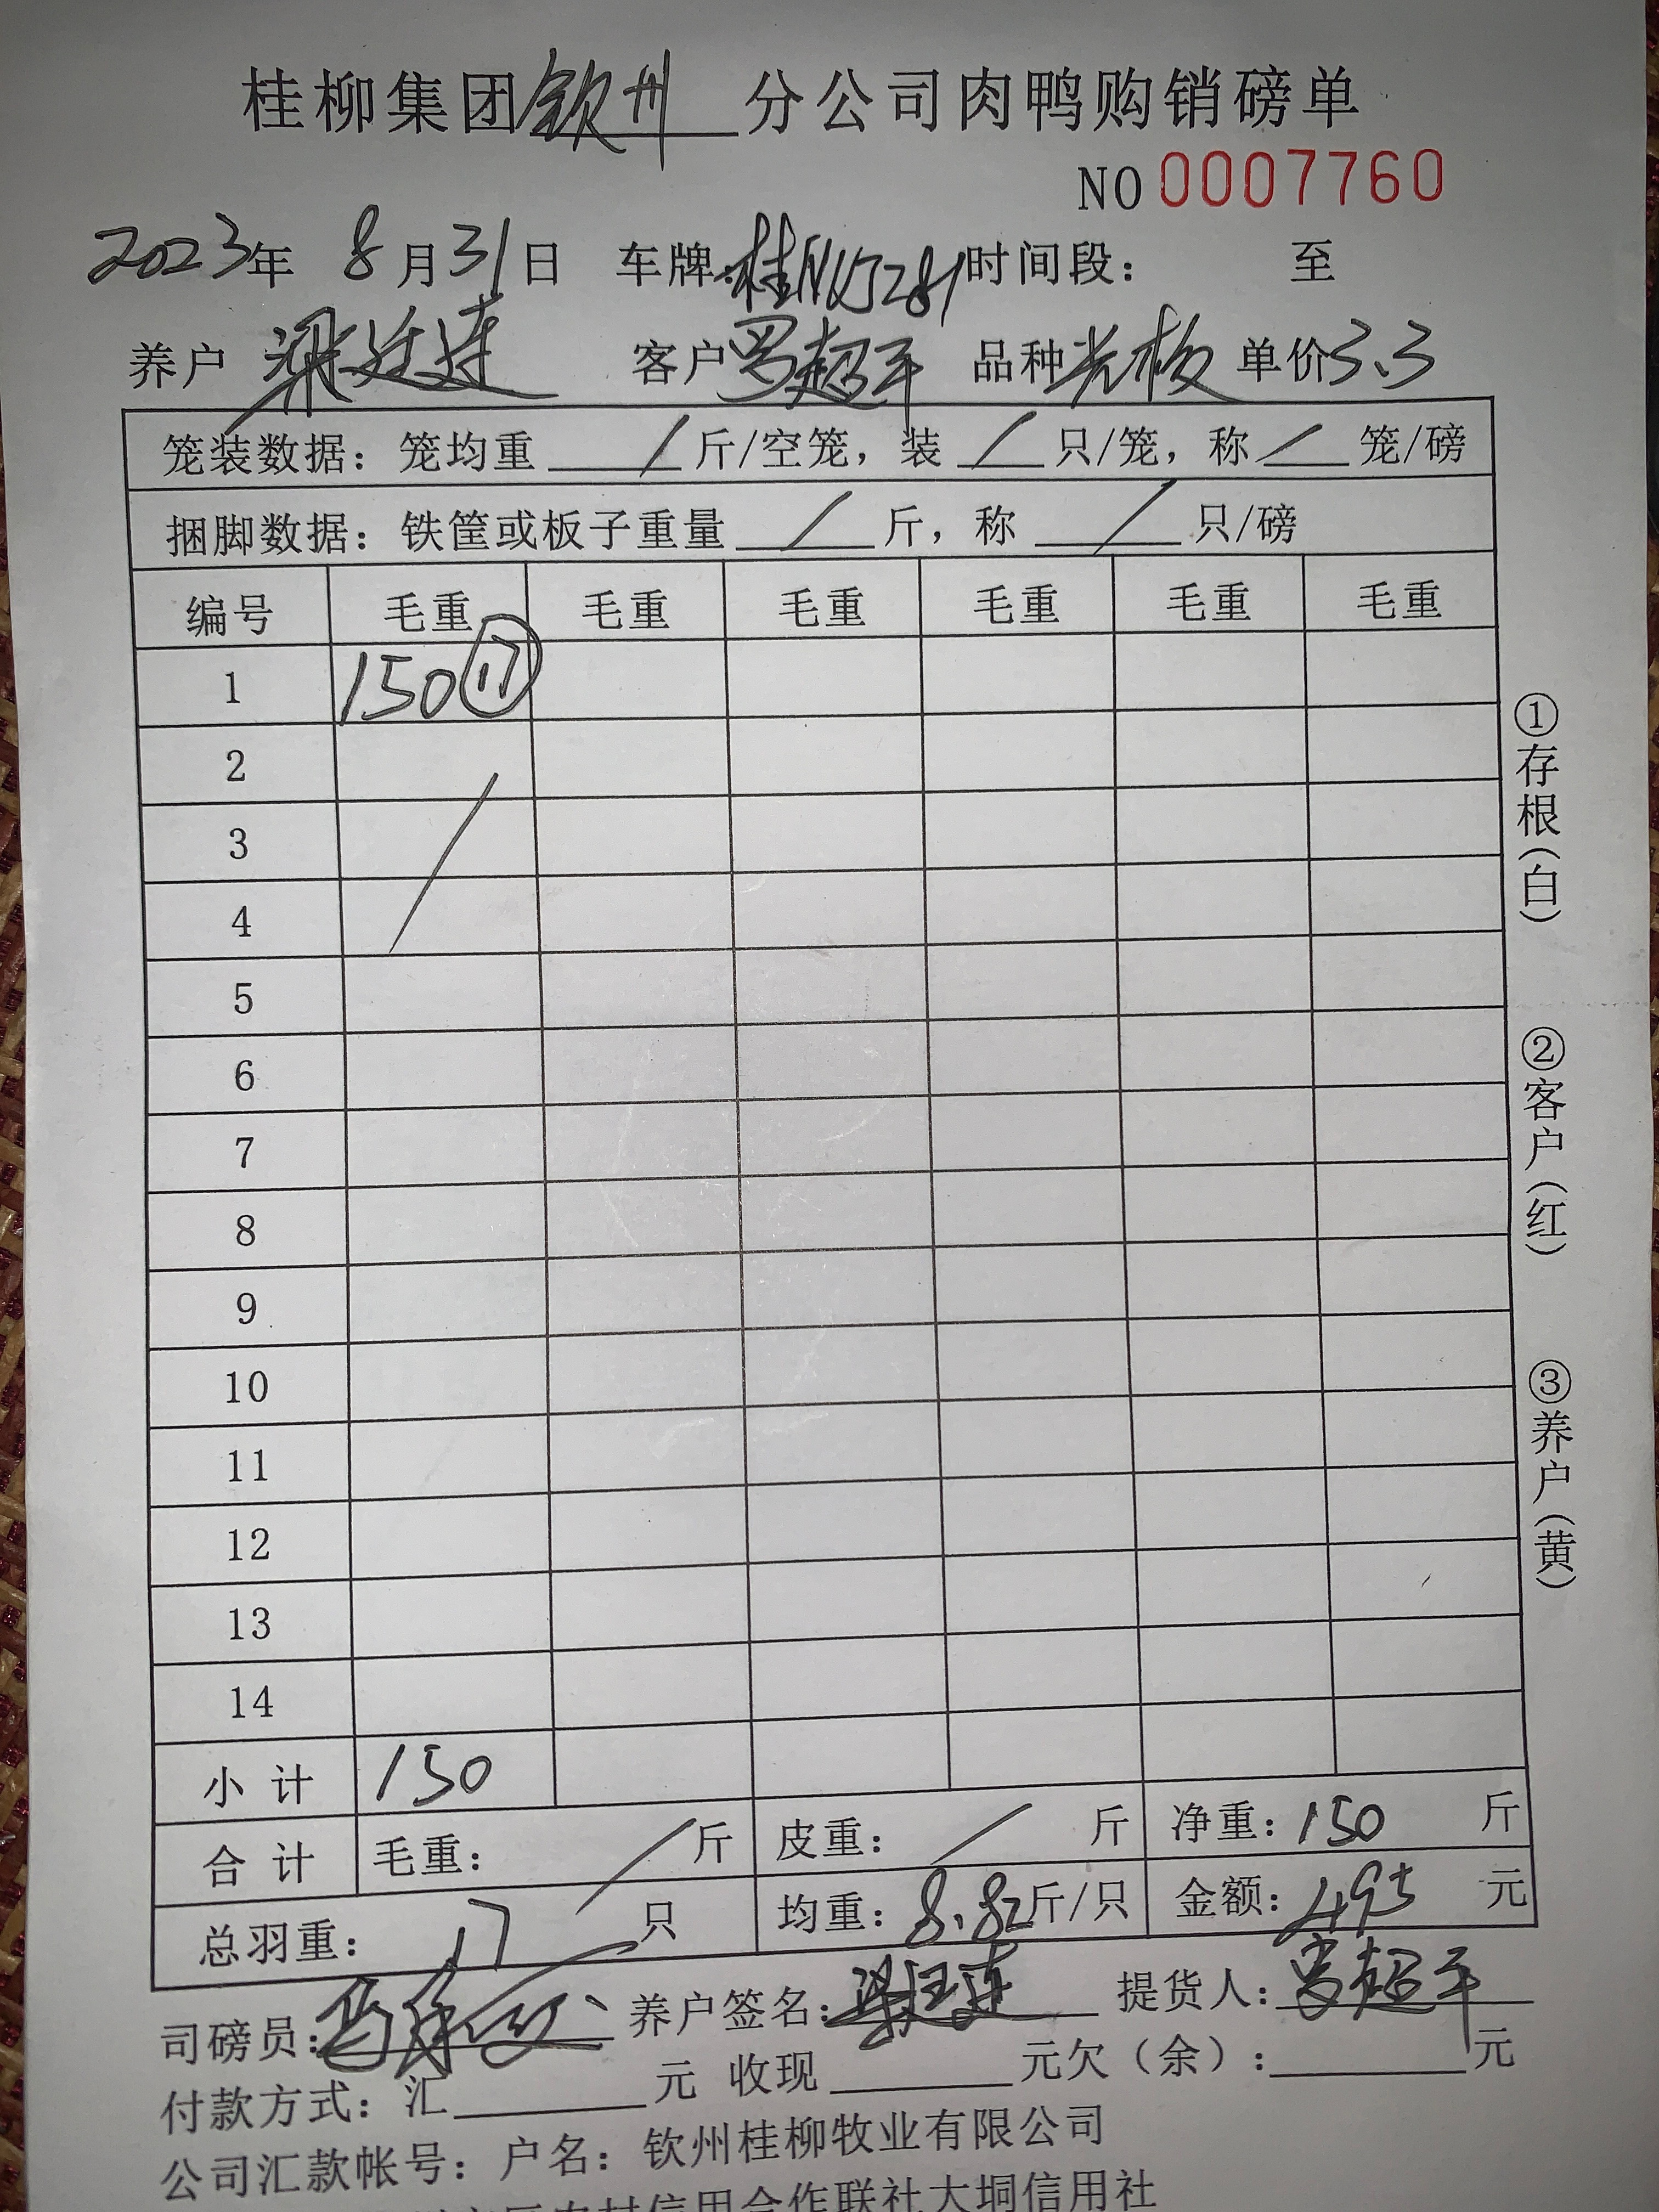 桂柳集团钦州分公司肉鸭购销磅单
NO 0007760
2023年 8月31日 车牌: 时间段: 至
养户 梁廷连 客户 罗超平 品种 光板 单价3.3
笼装数据: 笼均重 / 斤/空笼, 装 / 只/笼, 称 / 笼/磅
捆脚数据: 铁筐或板子重量 / 斤, 称 / 只/磅
编号 毛重 毛重 毛重 毛重 毛重 毛重
1 150⑰
2
3
4
5
6
7
8
9
10
11
12
13
14
小计 150
合计 毛重: / 斤 皮重: / 斤 净重: 150 斤
总羽重: 17 只 均重: 8.82斤/只 金额: 495 元
司磅员: 养户签名: 提货人: 罗超平
付款方式: 汇 元 收现 元欠(余): 元
公司汇款帐号: 户名: 钦州桂柳牧业有限公司
农村信用合作联社大垌信用社
①存根(白)
②客户(红)
③养户(黄)